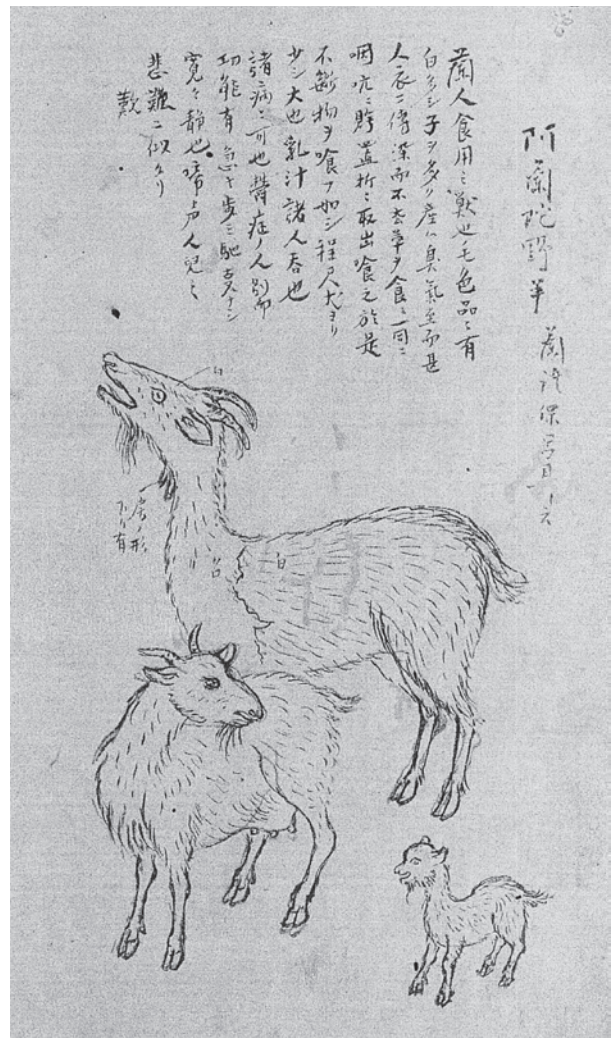 阿蘭陀野羊 蘭語保
蘭人食用之獣也毛色品々有
白多シ子ヲ多ク産ム臭氣至而甚
人衣ニ傳深而不去草ヲ食ニ一同ニ
咽元ニ貯置折々取出喰之於是
不断物ヲ喰フ如シ程尺犬ヨリ
少シ大也乳汁諸人呑也
諸病ニ可也労症ノ人別而
功能有急々歩ミ馳事ナシ
寛々静也啼声人児之
悲難ニ似タリ
歎
白
如形
下リ有
白
白